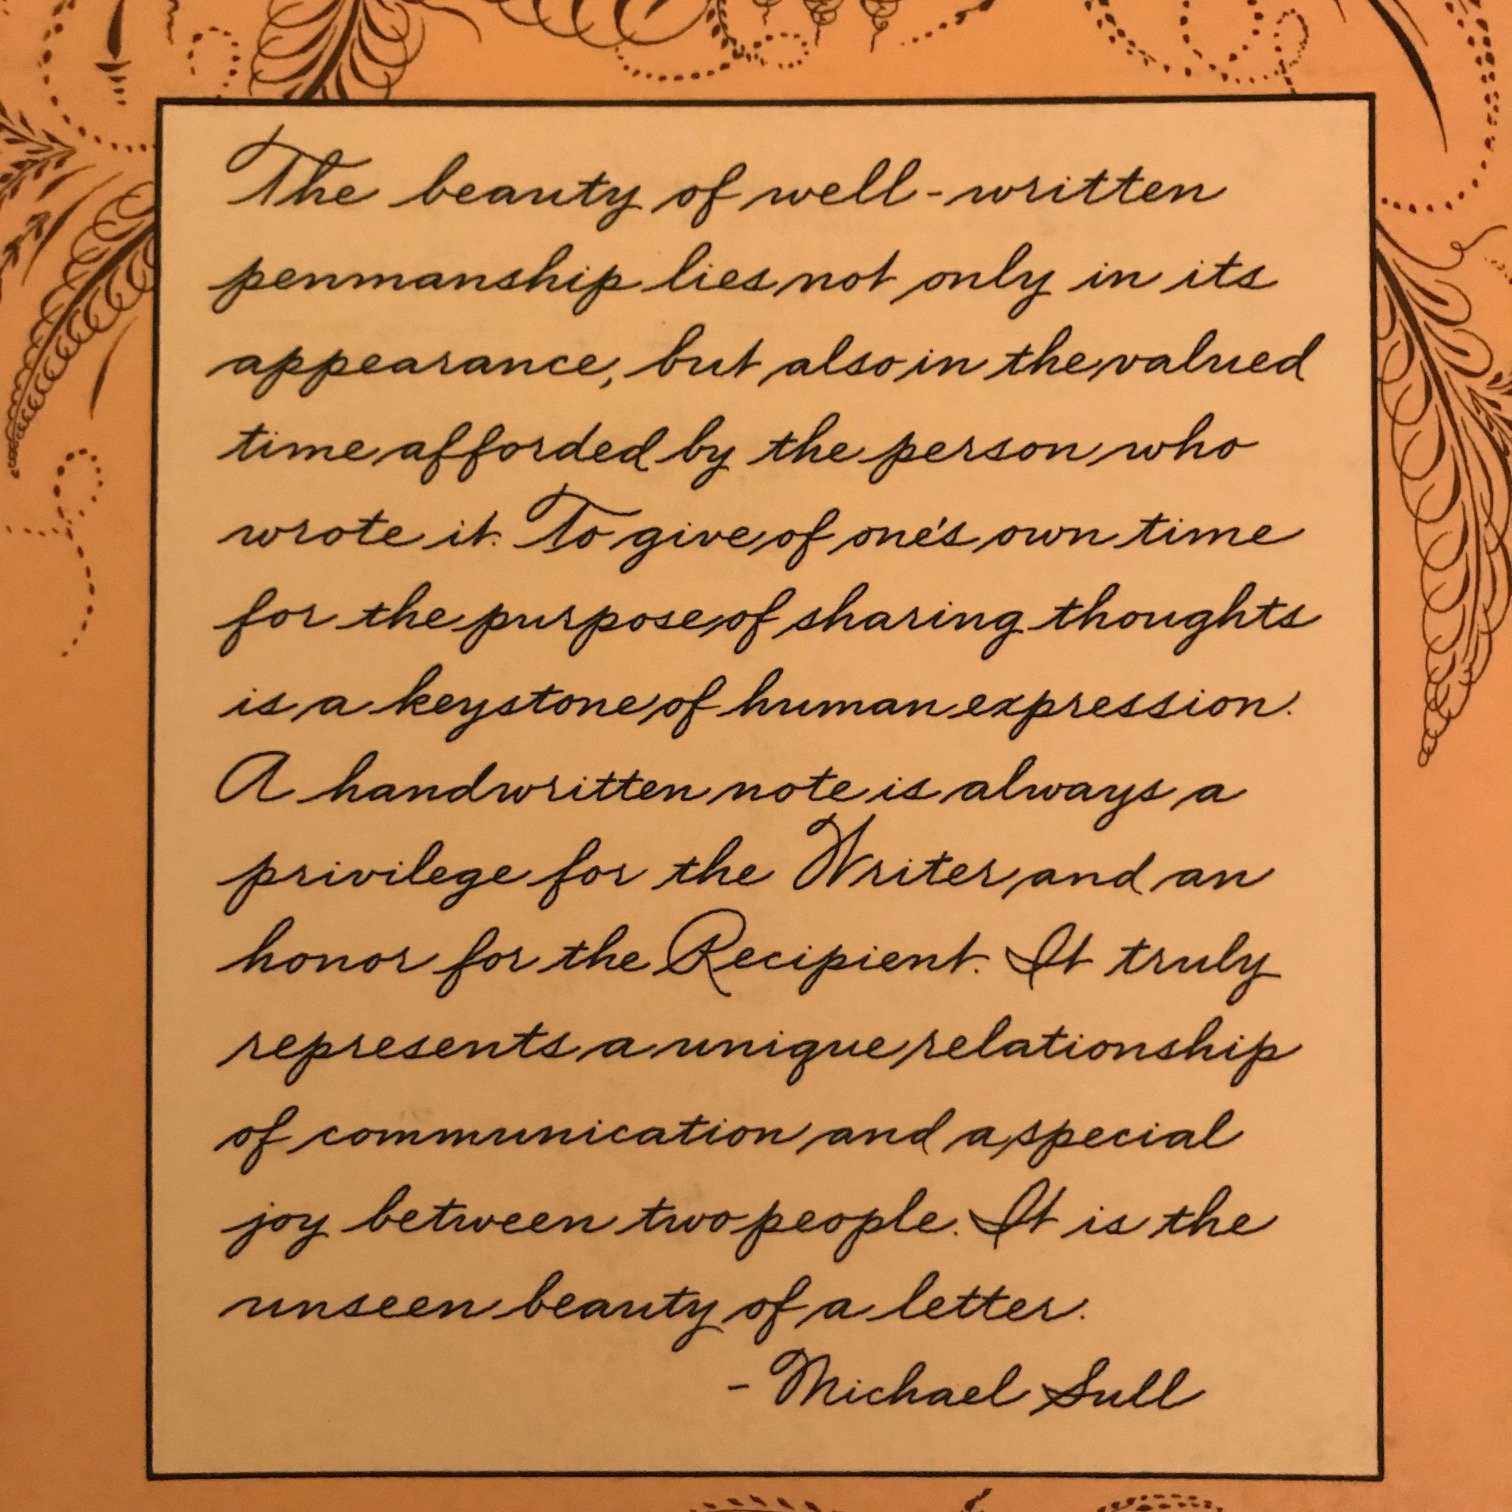 The beauty of well-written
penmanship lies not only in its
appearance, but also in the valued
time afforded by the person who
wrote it. To give of one's own time
for the purpose of sharing thoughts
is a keystone of human expression.
A handwritten note is always a
privilege for the Writer and an
honor for the Recipient. It truly
represents a unique relationship
of communication and a special
joy between two people. It is the
unseen beauty of a letter.
- Michael Sull